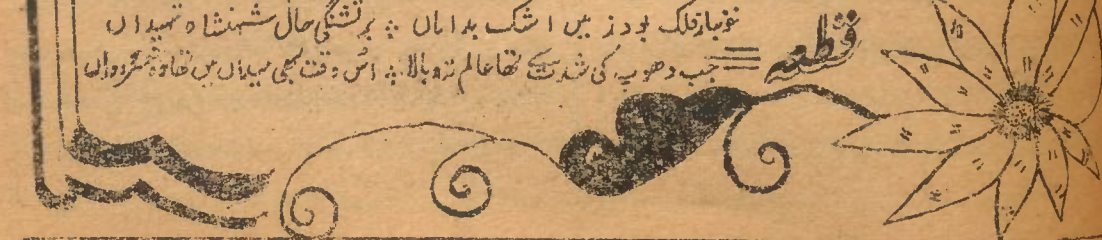 قطعہ
خونبار فلک بود ز بس اشک بداماں ؞ بر تشنگی حال شہنشاہ شہیداں
جب دھوپ کی شدت سے تھا عالم تہ و بالا ؞ اُس وقت بھی میداں میں تھا وہ